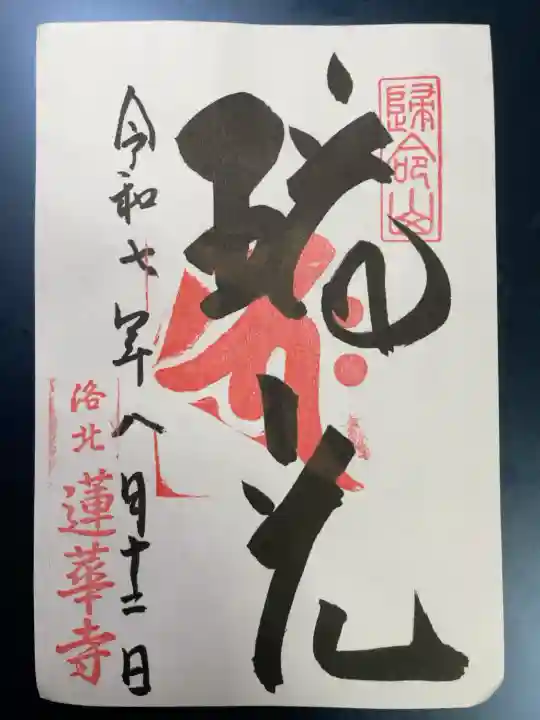 歸命山
花
令和七年八月十二日
洛北
蓮華寺